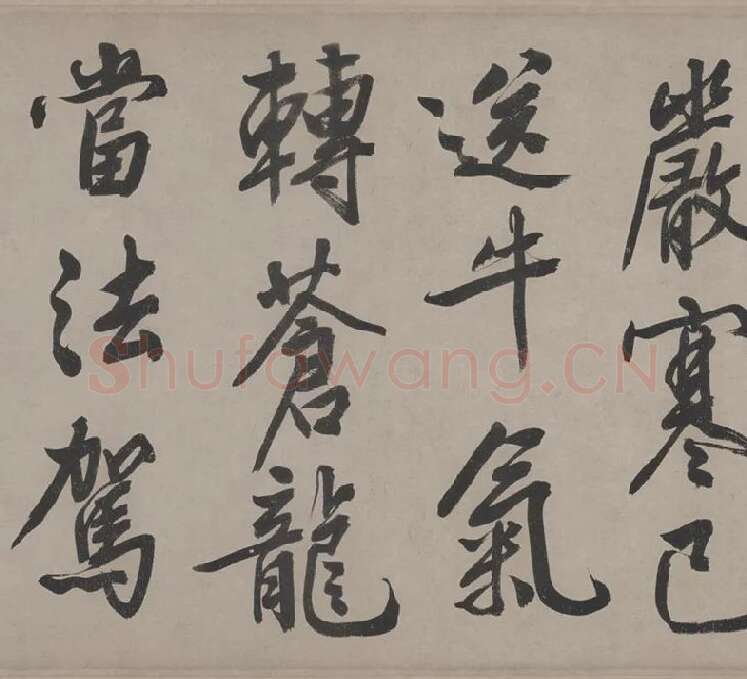 嚴寒已
送牛氣
轉蒼龍
當法駕
Shufawang.CN